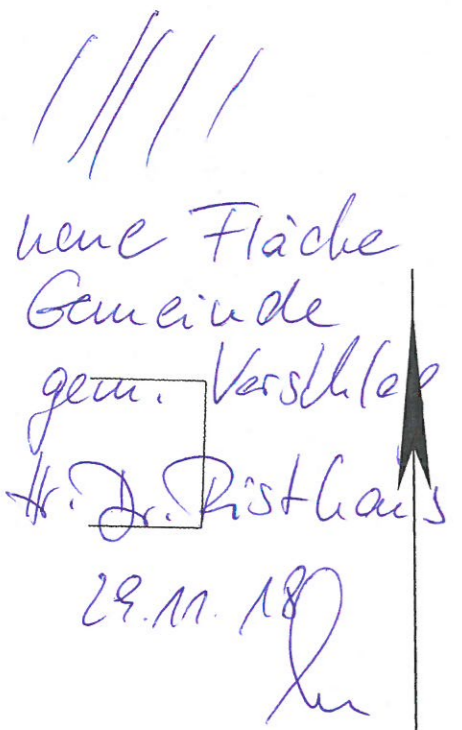 neue Fläche
Gemeinde
gem. Vorschlag
Hr. Dr. Risthaus
29.11.18